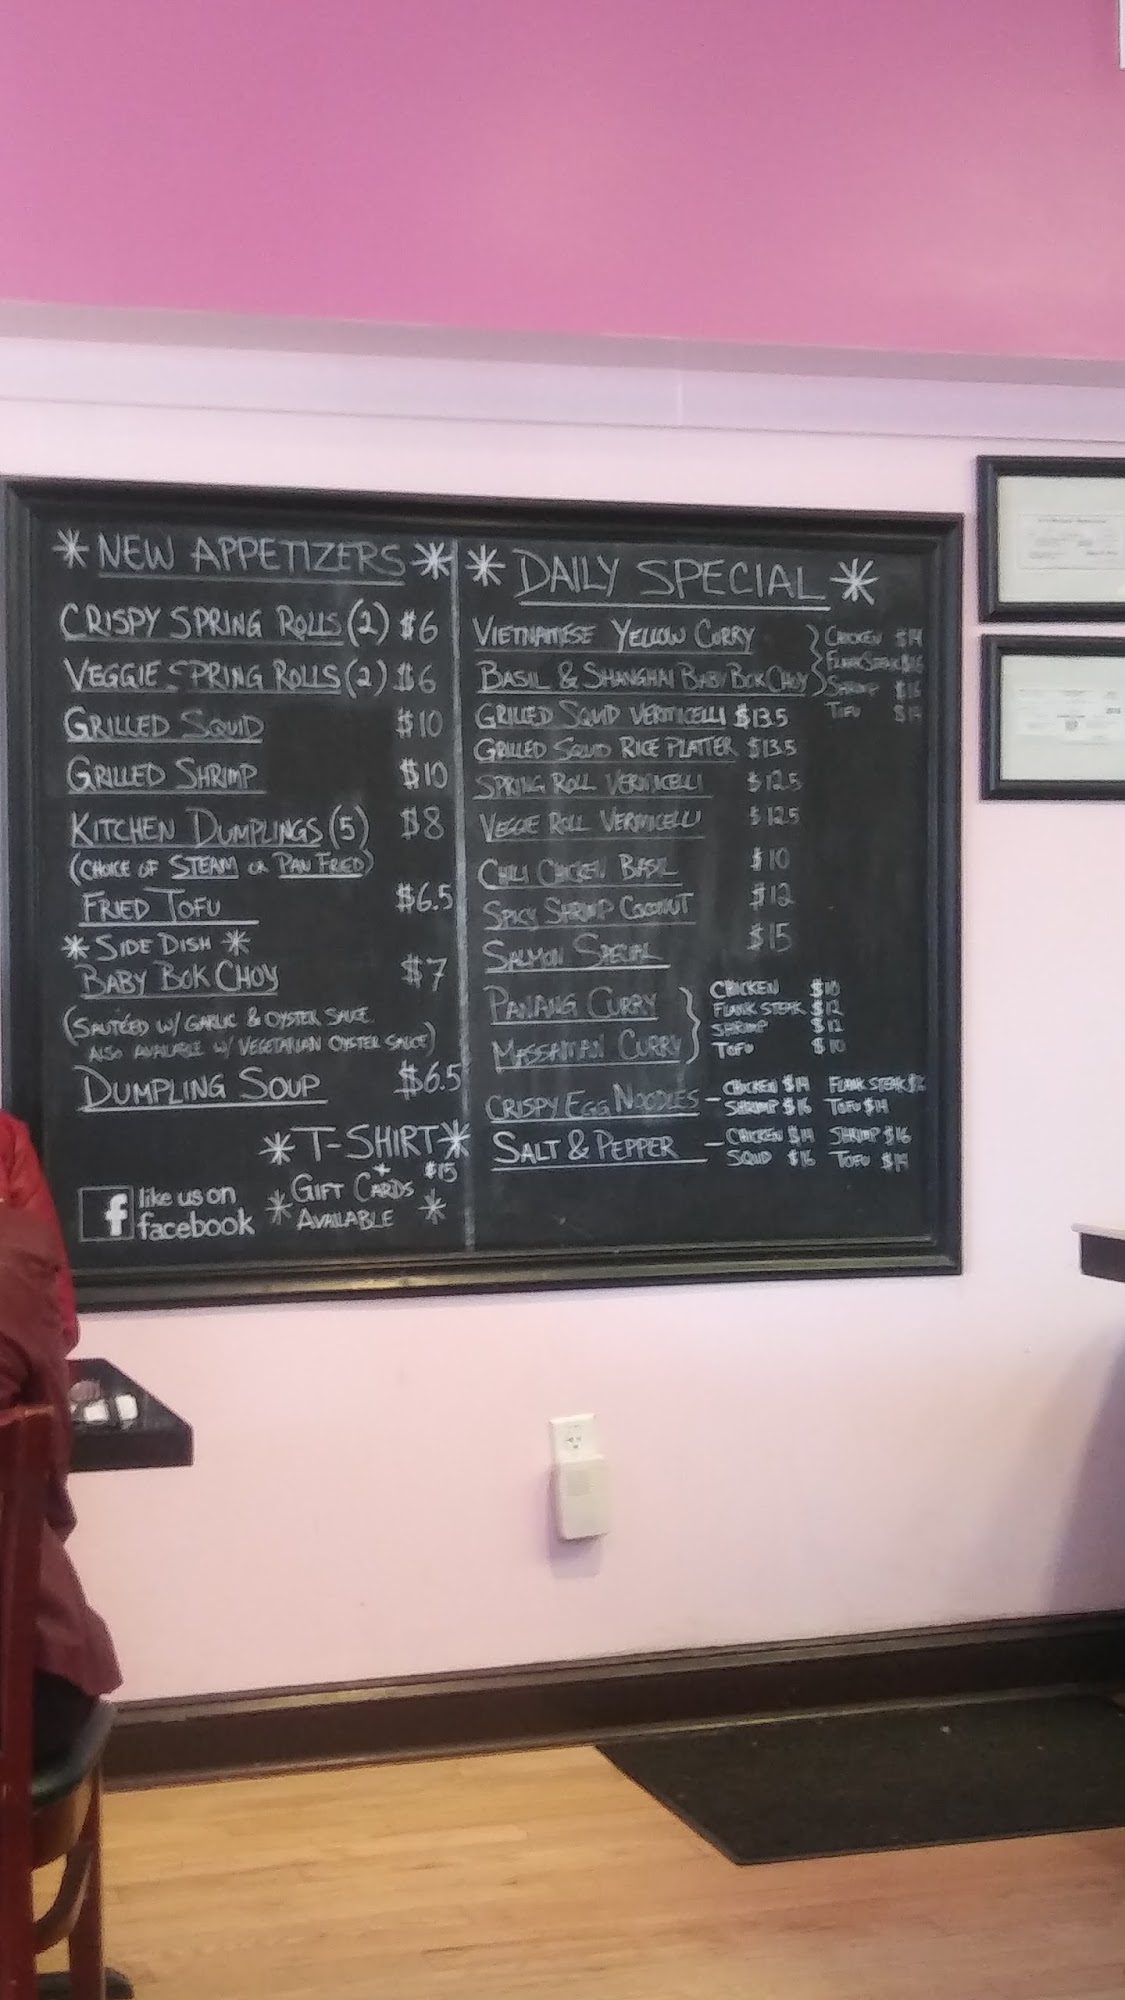 * NEW APPETIZERS *
CRISPY SPRING ROLLS (2) $6
VEGGIE SPRING ROLLS (2) $6
GRILLED SQUID $10
GRILLED SHRIMP $10
KITCHEN DUMPLINGS (5) $8
(CHOICE OF STEAM OR PAN FRIED)
FRIED TOFU $6.5
* SIDE DISH *
BABY BOK CHOY $7
(SAUTÉED W/ GARLIC & OYSTER SAUCE
ALSO AVAILABLE W/ VEGETARIAN OYSTER SAUCE)
DUMPLING SOUP $6.5
* T-SHIRT *
+ $15
GIFT CARDS
* AVAILABLE *
f like us on
facebook
* DAILY SPECIAL *
VIETNAMESE YELLOW CURRY
BASIL & SHANGHAI BABY BOK CHOY
CHICKEN $14
FLANK STEAK $16
SHRIMP $16
TOFU $14
GRILLED SQUID VERMICELLI $13.5
GRILLED SQUID RICE PLATTER $13.5
SPRING ROLL VERMICELLI $12.5
VEGGIE ROLL VERMICELLI $12.5
CHILI CHICKEN BASIL $10
SPICY SHRIMP COCONUT $12
SALMON SPECIAL $15
PANANG CURRY
MASSAMAN CURRY
CHICKEN $10
FLANK STEAK $12
SHRIMP $12
TOFU $10
CRISPY EGG NOODLES - CHICKEN $14 FLANK STEAK
SHRIMP $16 TOFU $14
SALT & PEPPER - CHICKEN $14 SHRIMP $16
SQUID $16 TOFU $14